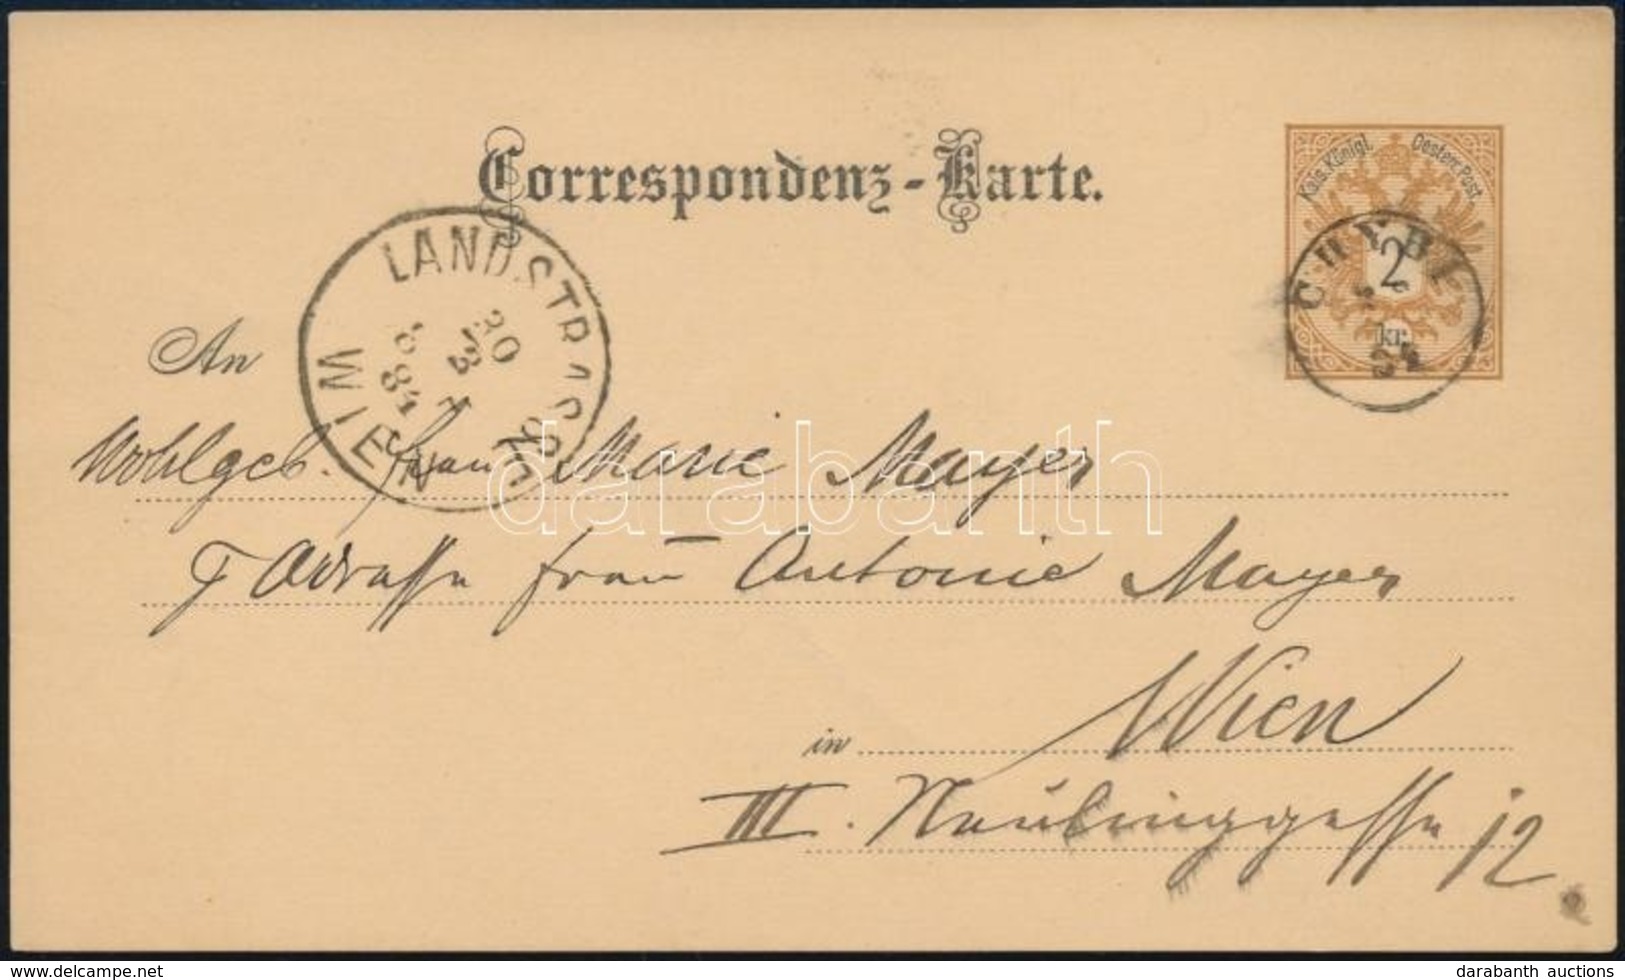 Correspondenz-Karte.
Kais. Königl. Oesterr. Post
2
kr.
LANDSTRASSE
WIEN
20
3
84
An
Wohlgeb. Frau Marie Mayer
Adresse Frau Antonie Mayer
in Wien
III. Neulinggasse 12
darabanth
© darabanth.com
darabanth auctions